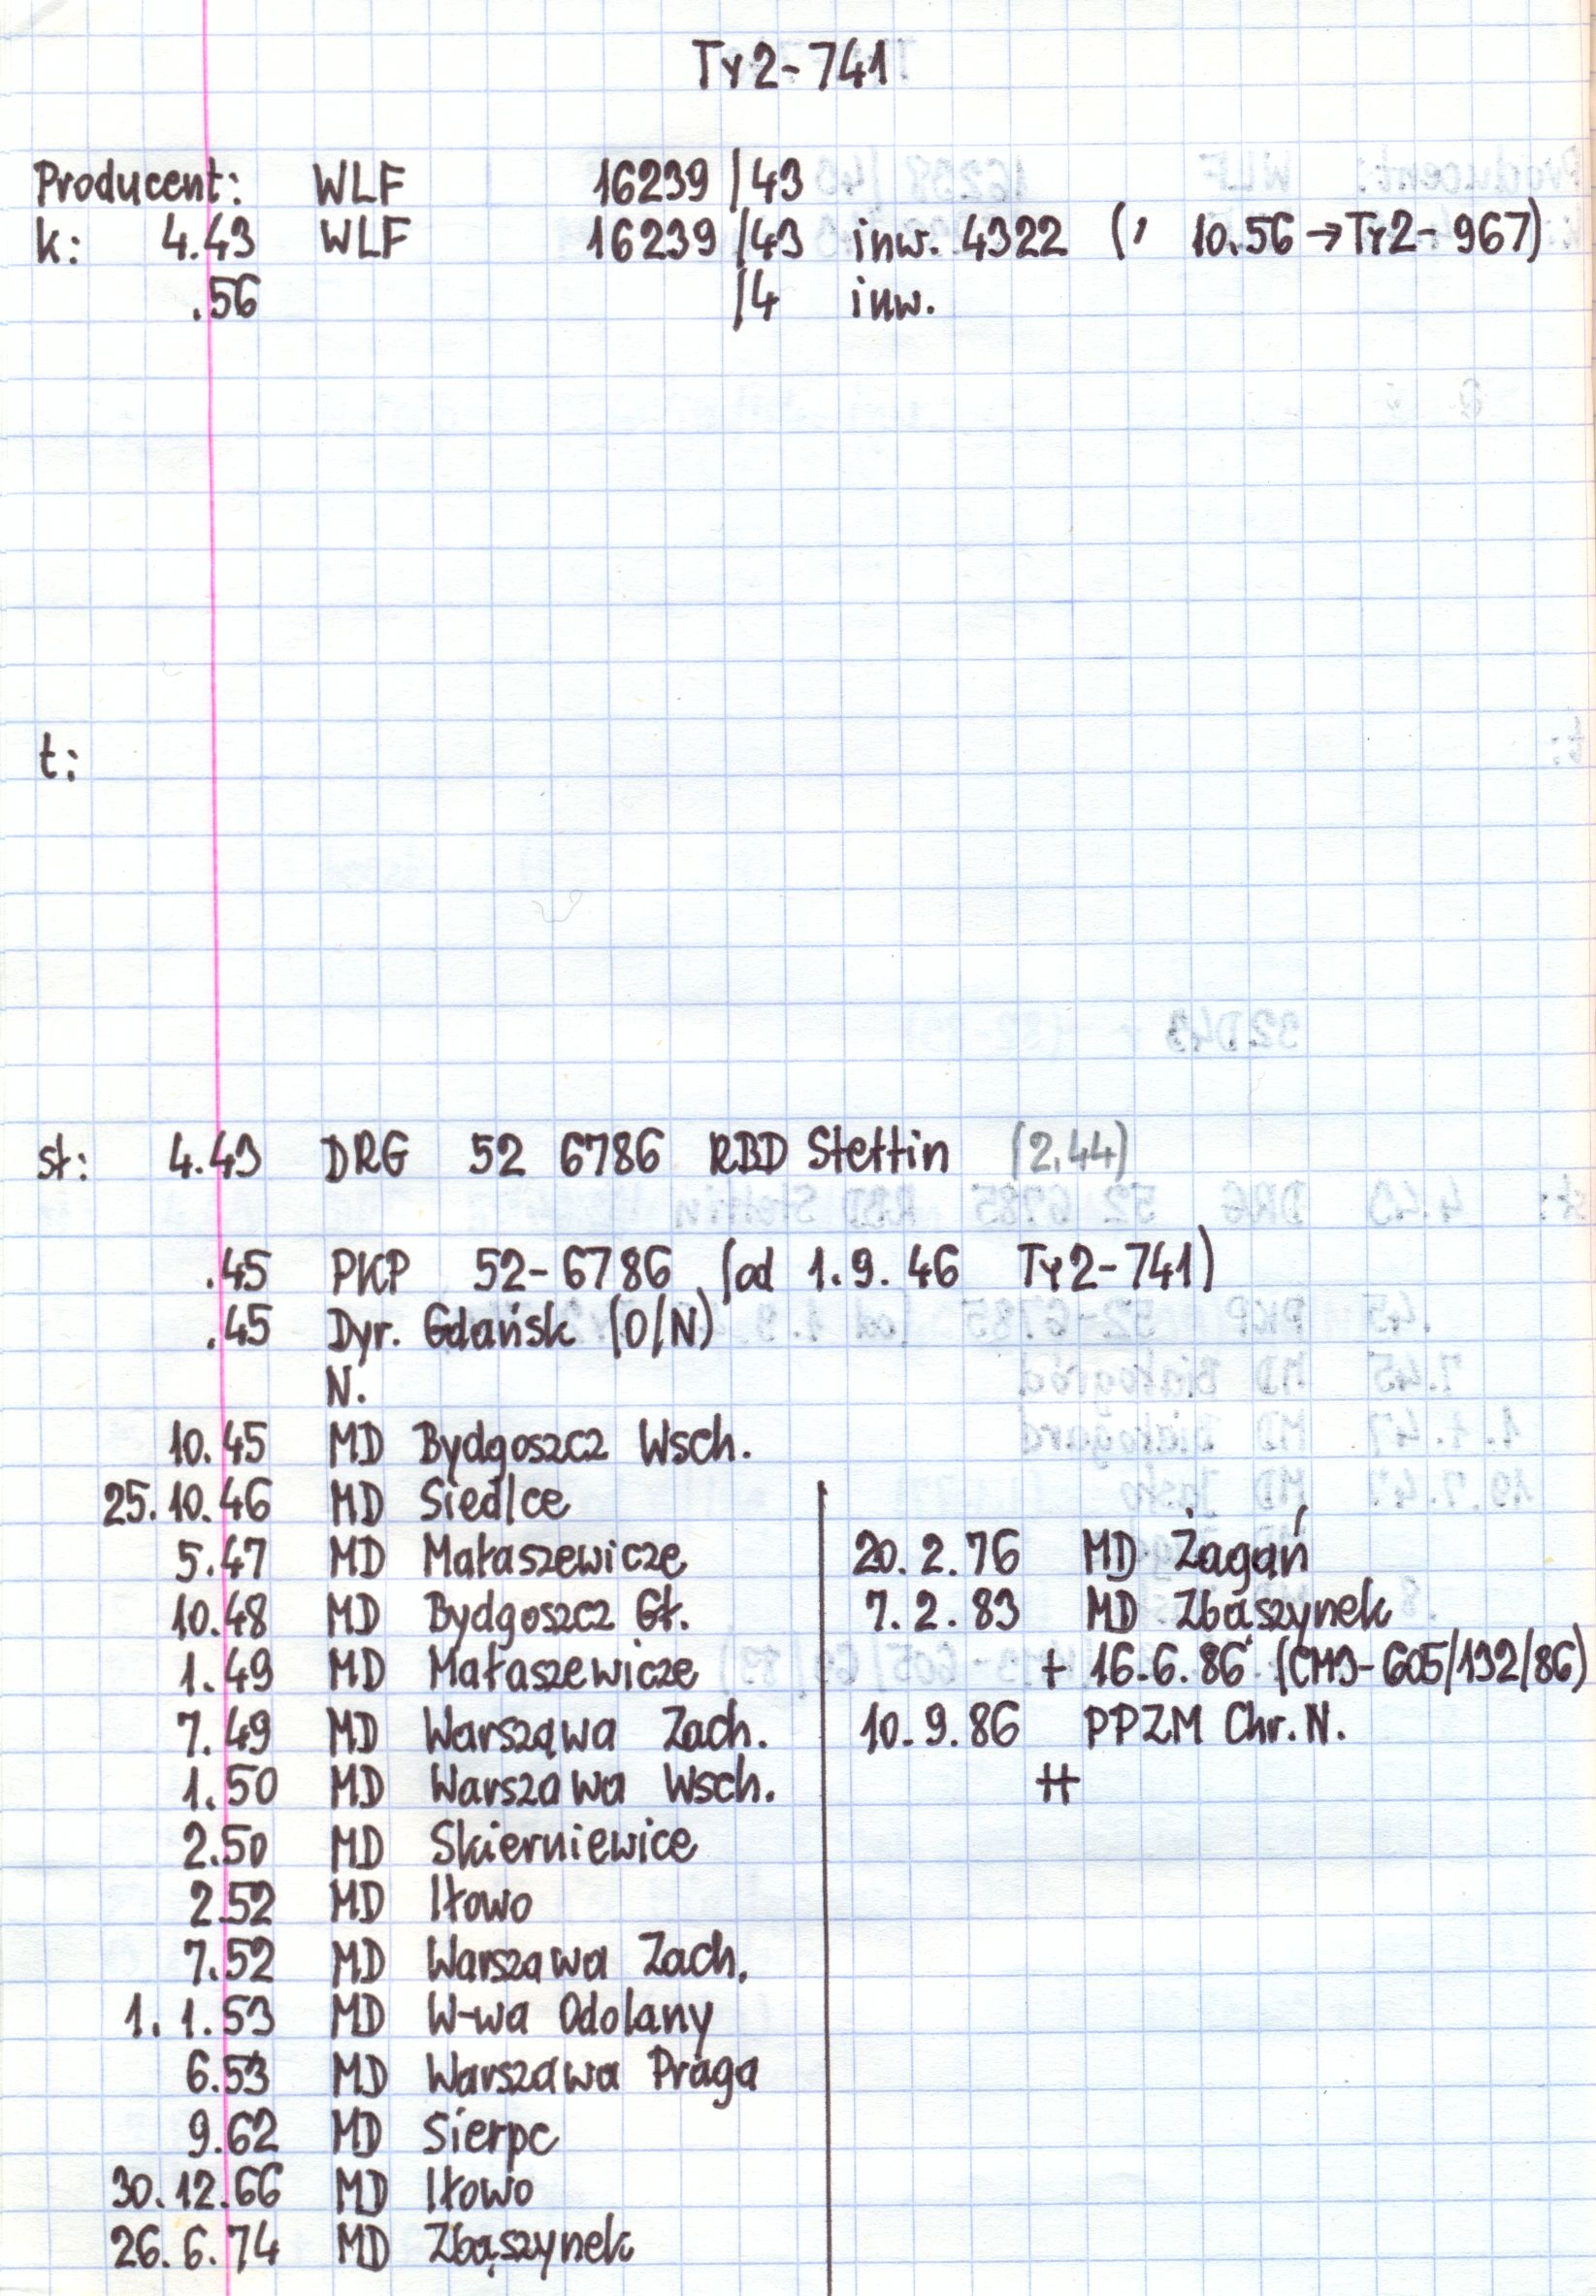 Ty2-741
Producent: WLF 16239/43
k: 4.43 WLF 16239/43 inw. 4322 (, 10.56→Ty2-967)
.56 /4 inw.
t:
st: 4.43 DRG 52 6786 RBD Stettin (2.44)
.45 PKP 52-6786 (od 1.9.46 Ty2-741)
.45 Dyr. Gdańsk (O/N)
N.
10.45 MD Bydgoszcz Wsch.
25.10.46 MD Siedlce
5.47 MD Małaszewicze
10.48 MD Bydgoszcz Gł.
1.49 MD Małaszewicze
7.49 MD Warszawa Zach.
1.50 MD Warszawa Wsch.
2.50 MD Skierniewice
2.52 MD Iłowo
7.52 MD Warszawa Zach.
1.1.53 MD W-wa Odolany
6.53 MD Warszawa Praga
9.62 MD Sierpc
30.12.66 MD Iłowo
26.6.74 MD Zbąszynek
20.2.76 MD Żagań
7.2.83 MD Zbąszynek
+ 16.6.86 (CM3-605/132/86)
10.9.86 PPZM Chr.N.
++